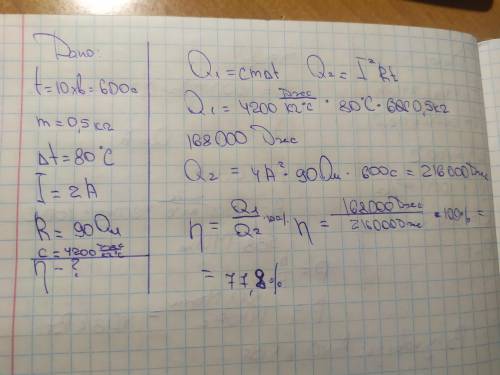 Дано:
t=10хв=600с
m=0,5кг
Δt=80°C
I=2A
R=90Ом
c=4200 Дж/кг°C
η-?
Q₁=cmΔt Q₂=I²Rt
Q₁=4200 Дж/кг°C · 80°C · 0,5кг
168000 Дж
Q₂=4A²·90Ом·600с=216000Дж
η=Q₁/Q₂·100% η=168000Дж/216000Дж·100%=
=77,8%